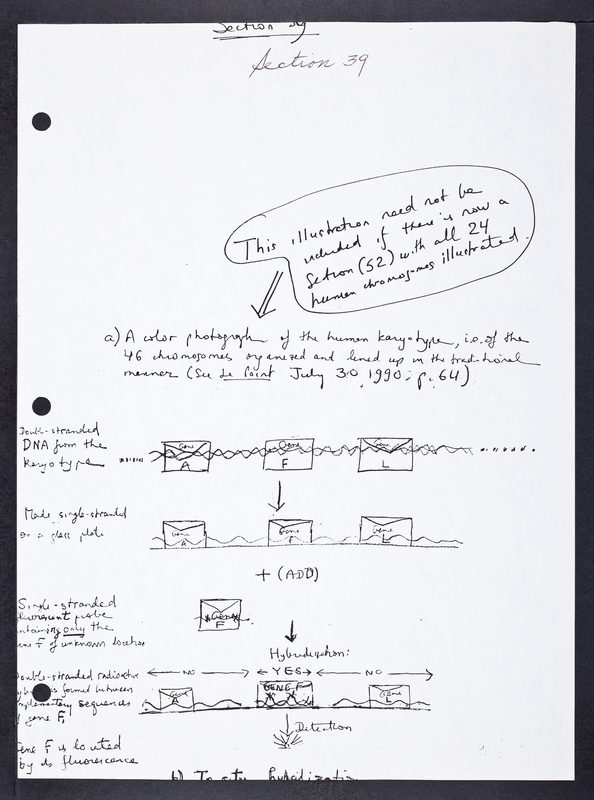 Section 39
Section 39
This illustration need not be
included if there is now a
Section (52) with all 24
human chromosomes illustrated.
a) A color photograph of the human karyotype, i.e. of the
46 chromosomes organized and lined up in the traditional
manner (See Le Point July 30, 1990; p. 64)
Double-stranded
DNA from the
karyotype
Gene A
Gene F
Gene L
Made single-stranded
on a glass plate
Gene A
Gene F
Gene L
+ (ADD)
Single-stranded
fluorescent probe
containing only the
gene F of unknown location
Gene F
Hybridization:
Double-stranded radioactive
formed between
complementary sequences
of gene F,
NO YES NO
Gene A
GENE F
Gene L
Detection
Gene F is located
by its fluorescence
b) In situ hybridization